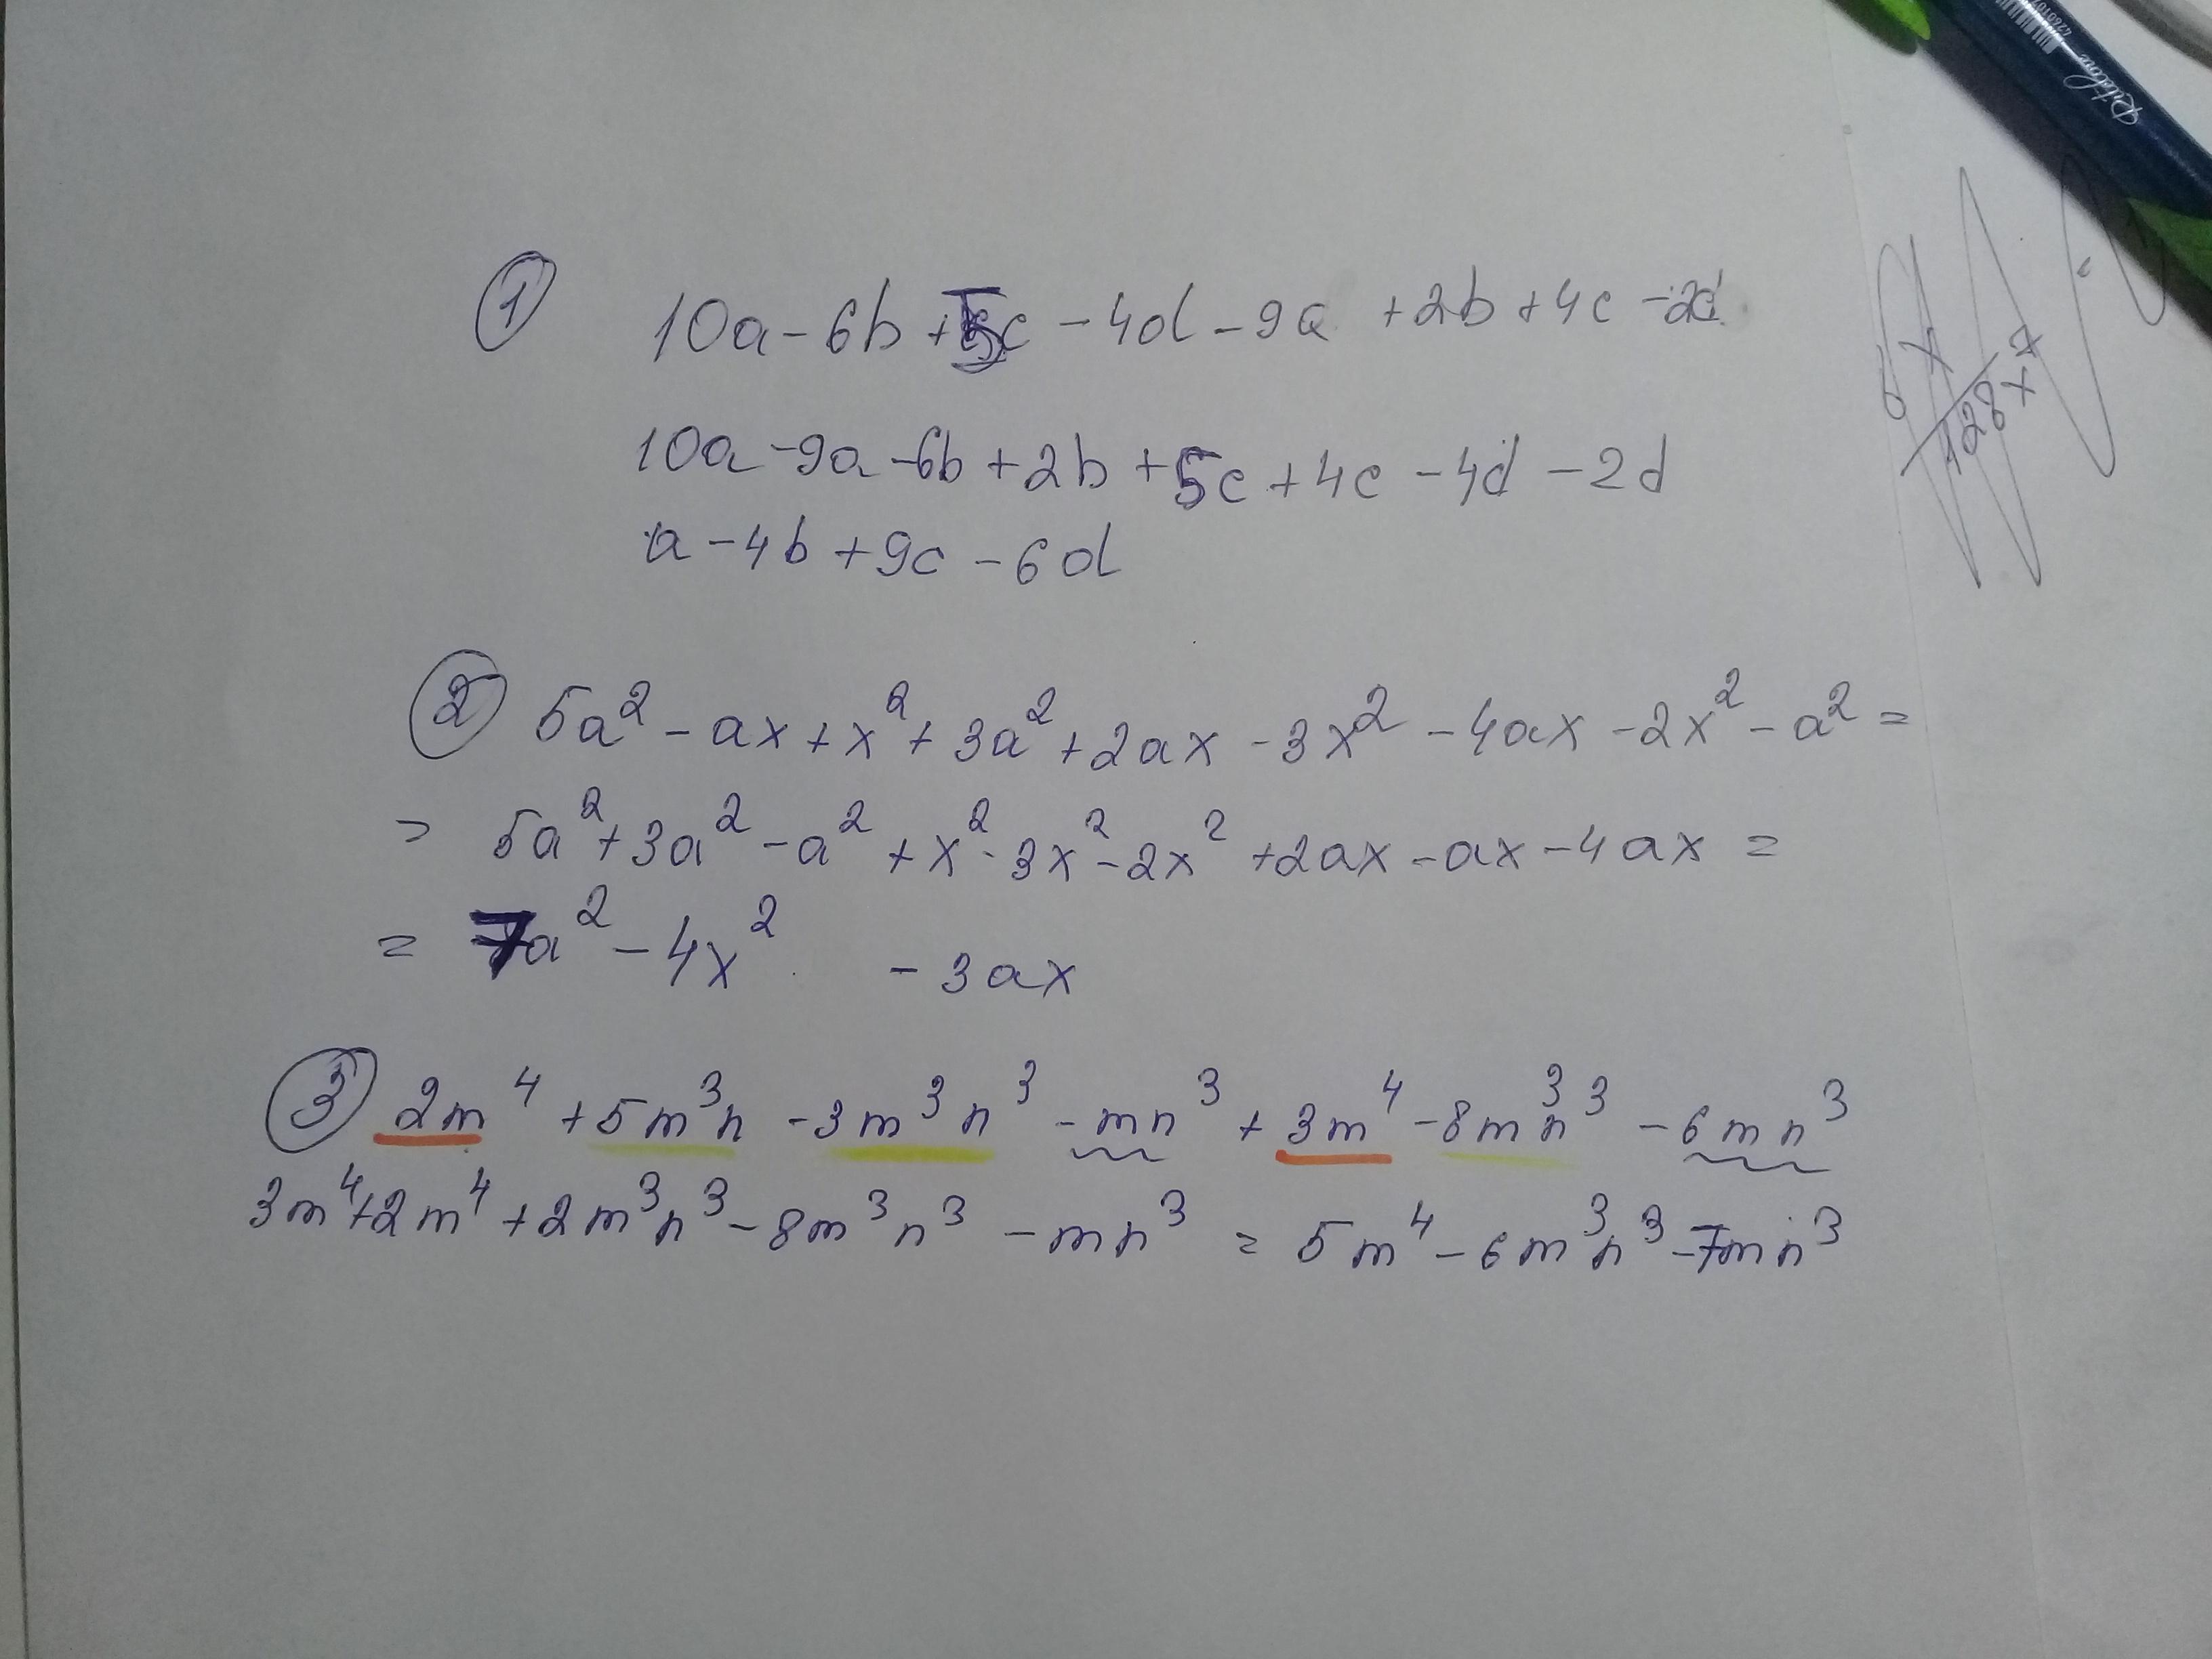 ① 10a - 6b + 5c - 4d - 9a + 2b + 4c - 2d
10a - 9a - 6b + 2b + 5c + 4c - 4d - 2d
a - 4b + 9c - 6d
② 5a² - ax + x² + 3a² + 2ax - 3x² - 4ax - 2x² - a² =
= 5a² + 3a² - a² + x² - 3x² - 2x² + 2ax - ax - 4ax =
= 7a² - 4x² - 3ax
③ 2m⁴ + 5m³n - 3m³n³ - mn³ + 3m⁴ - 8m³n³ - 6mn³
3m⁴ + 2m⁴ + 2m³n³ - 8m³n³ - mn³ = 5m⁴ - 6m³n³ - 7mn³